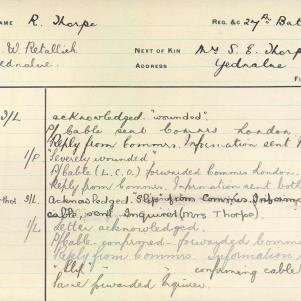 NAME R. Thorpe REG. &C 27th Bat
W. Retallick NEXT OF KIN Mrs S. E. Thorp
Yednalue. ADDRESS Yednalue
3/L acknowledged. "wounded".
P/Cable sent Commrs London.
Reply from Commrs. Information sent
1/P "Severely wounded"
P/Cable (L.C.O.) forwarded Commrs London.
Reply from Commrs. Information sent both
3/L. Acknowledged. Slip from Commrs. Inform
cable, sent Inquirer (Mrs Thorpe).
1/L Letter acknowledged.
P/Cable confirmed. forwarded Commrs
Reply from Commrs. Information
"Slip" " confirming cable
Same forwarded Inquirer.